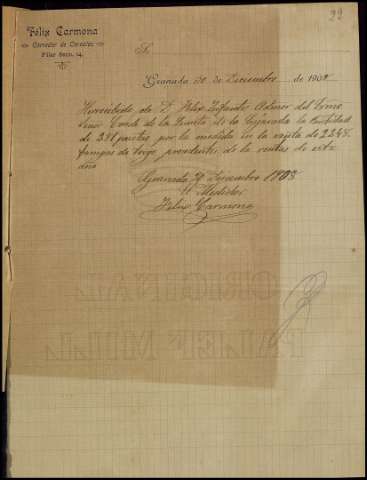 22
Félix Carmona
Corredor de Cereales
Pilar Seco, 14.
S.
Granada 30 de Diciembre de 1903
He recibido de D. Felix Infantes Admor del Exmo
Señor Conde de la Puerta de la la Cantidad
de 281 pesetas por la medida en la venta de 2248
fanegas de trigo procedentes de la rentas de este
año
Granada 30 Diciembre 1903
El Medidor
Felix Carmona
ORIGINAL
MILL